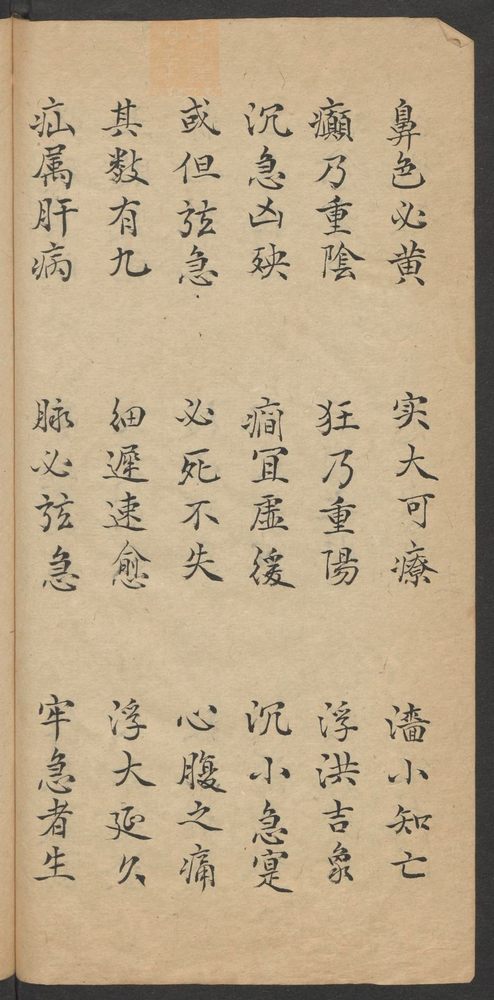 鼻色必黄　实大可療　濇小知亡
癲乃重陰　狂乃重陽　浮洪吉象
沉急凶殃　癇宜虛緩　沉小急寔
或但弦急　必死不失　心腹之痛
其数有九　细遲速愈　浮大延久
疝属肝病　脉必弦急　牢急者生